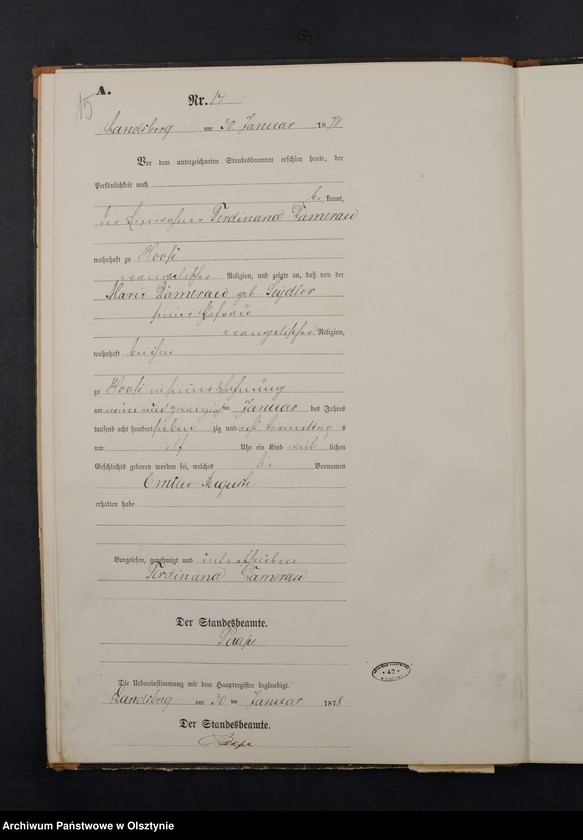 A.
15
Nr. 14
Landsberg am 30 Januar 1878
Vor dem unterzeichneten Standesbeamten erschien heute, der
Persönlichkeit nach
be kannt,
der Einwohner Ferdinand Damerau
wohnhaft zu
evangelischer Religion, und zeigte an, daß von der
Marie Damerau geb Seydler
seiner Ehefrau
evangelischer Religion,
wohnhaft bei ihm
zu in seiner Wohnung
am neun und zwanzigsten Januar des Jahres
tausend acht hundert sieben zig und acht Vormittag s
um elf Uhr ein Kind weib lichen
Geschlechts geboren worden sei, welches die Vornamen
Emilie Auguste
erhalten habe
Vorgelesen, genehmigt und unterschrieben
Ferdinand Damerau
Der Standesbeamte.
Die Uebereinstimmung mit dem Hauptregister beglaubigt.
Landsberg am 30 ten Januar 1878
Der Standesbeamte.
47
Archiwum Państwowe w Olsztynie